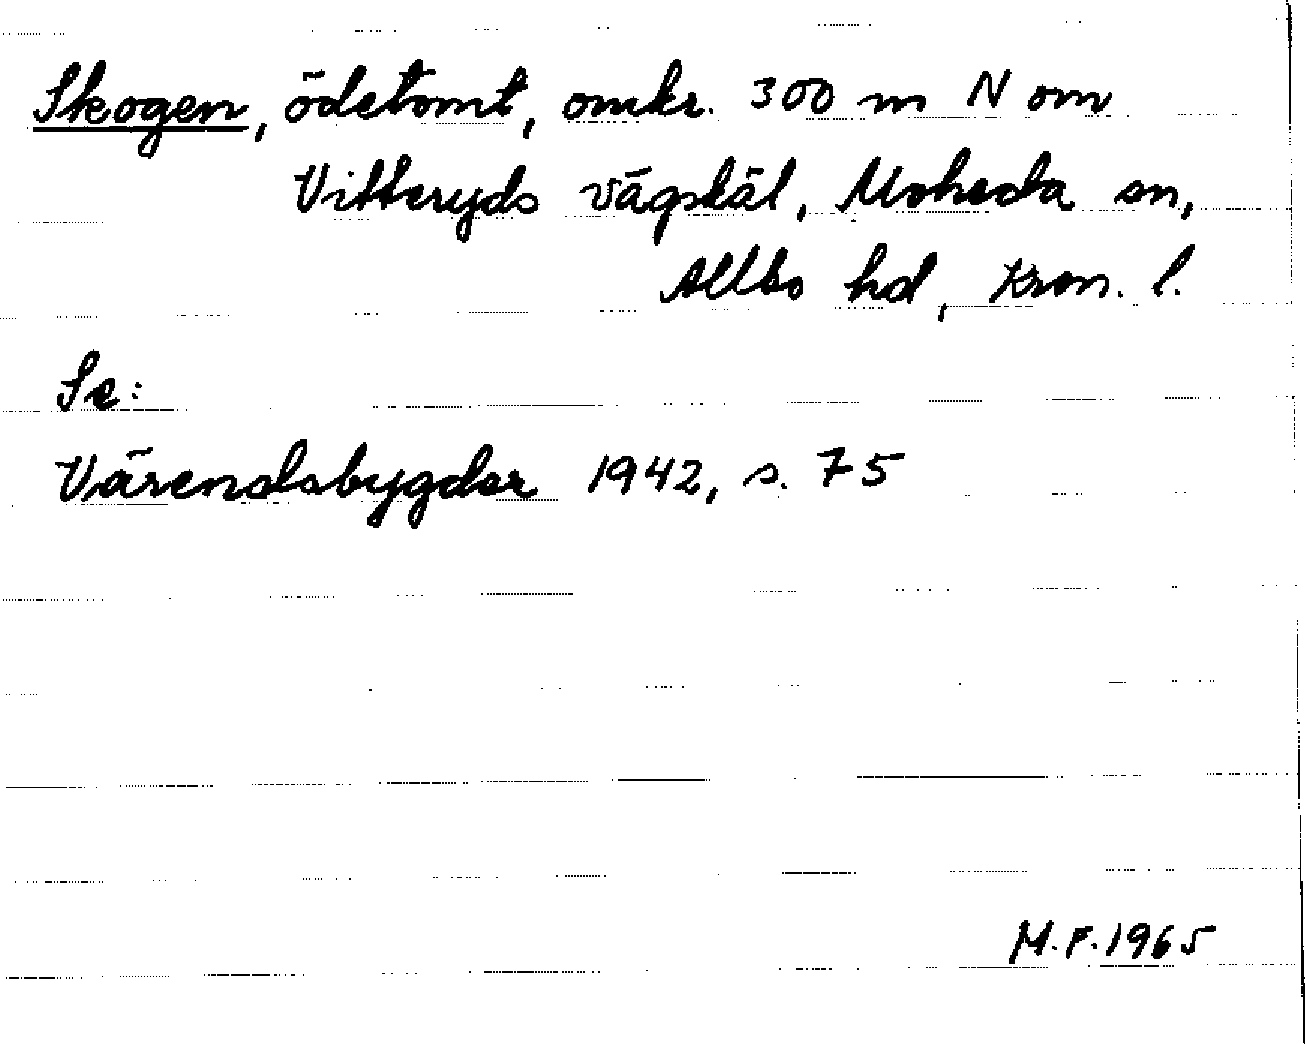 Skogen, ödetomt, omkr. 300 m N om
Vitteryds vägskäl, Moheda sn,
Allbo hd, Kron. l.
Se:
Värendsbygder 1942, s. 75
M.F. 1965